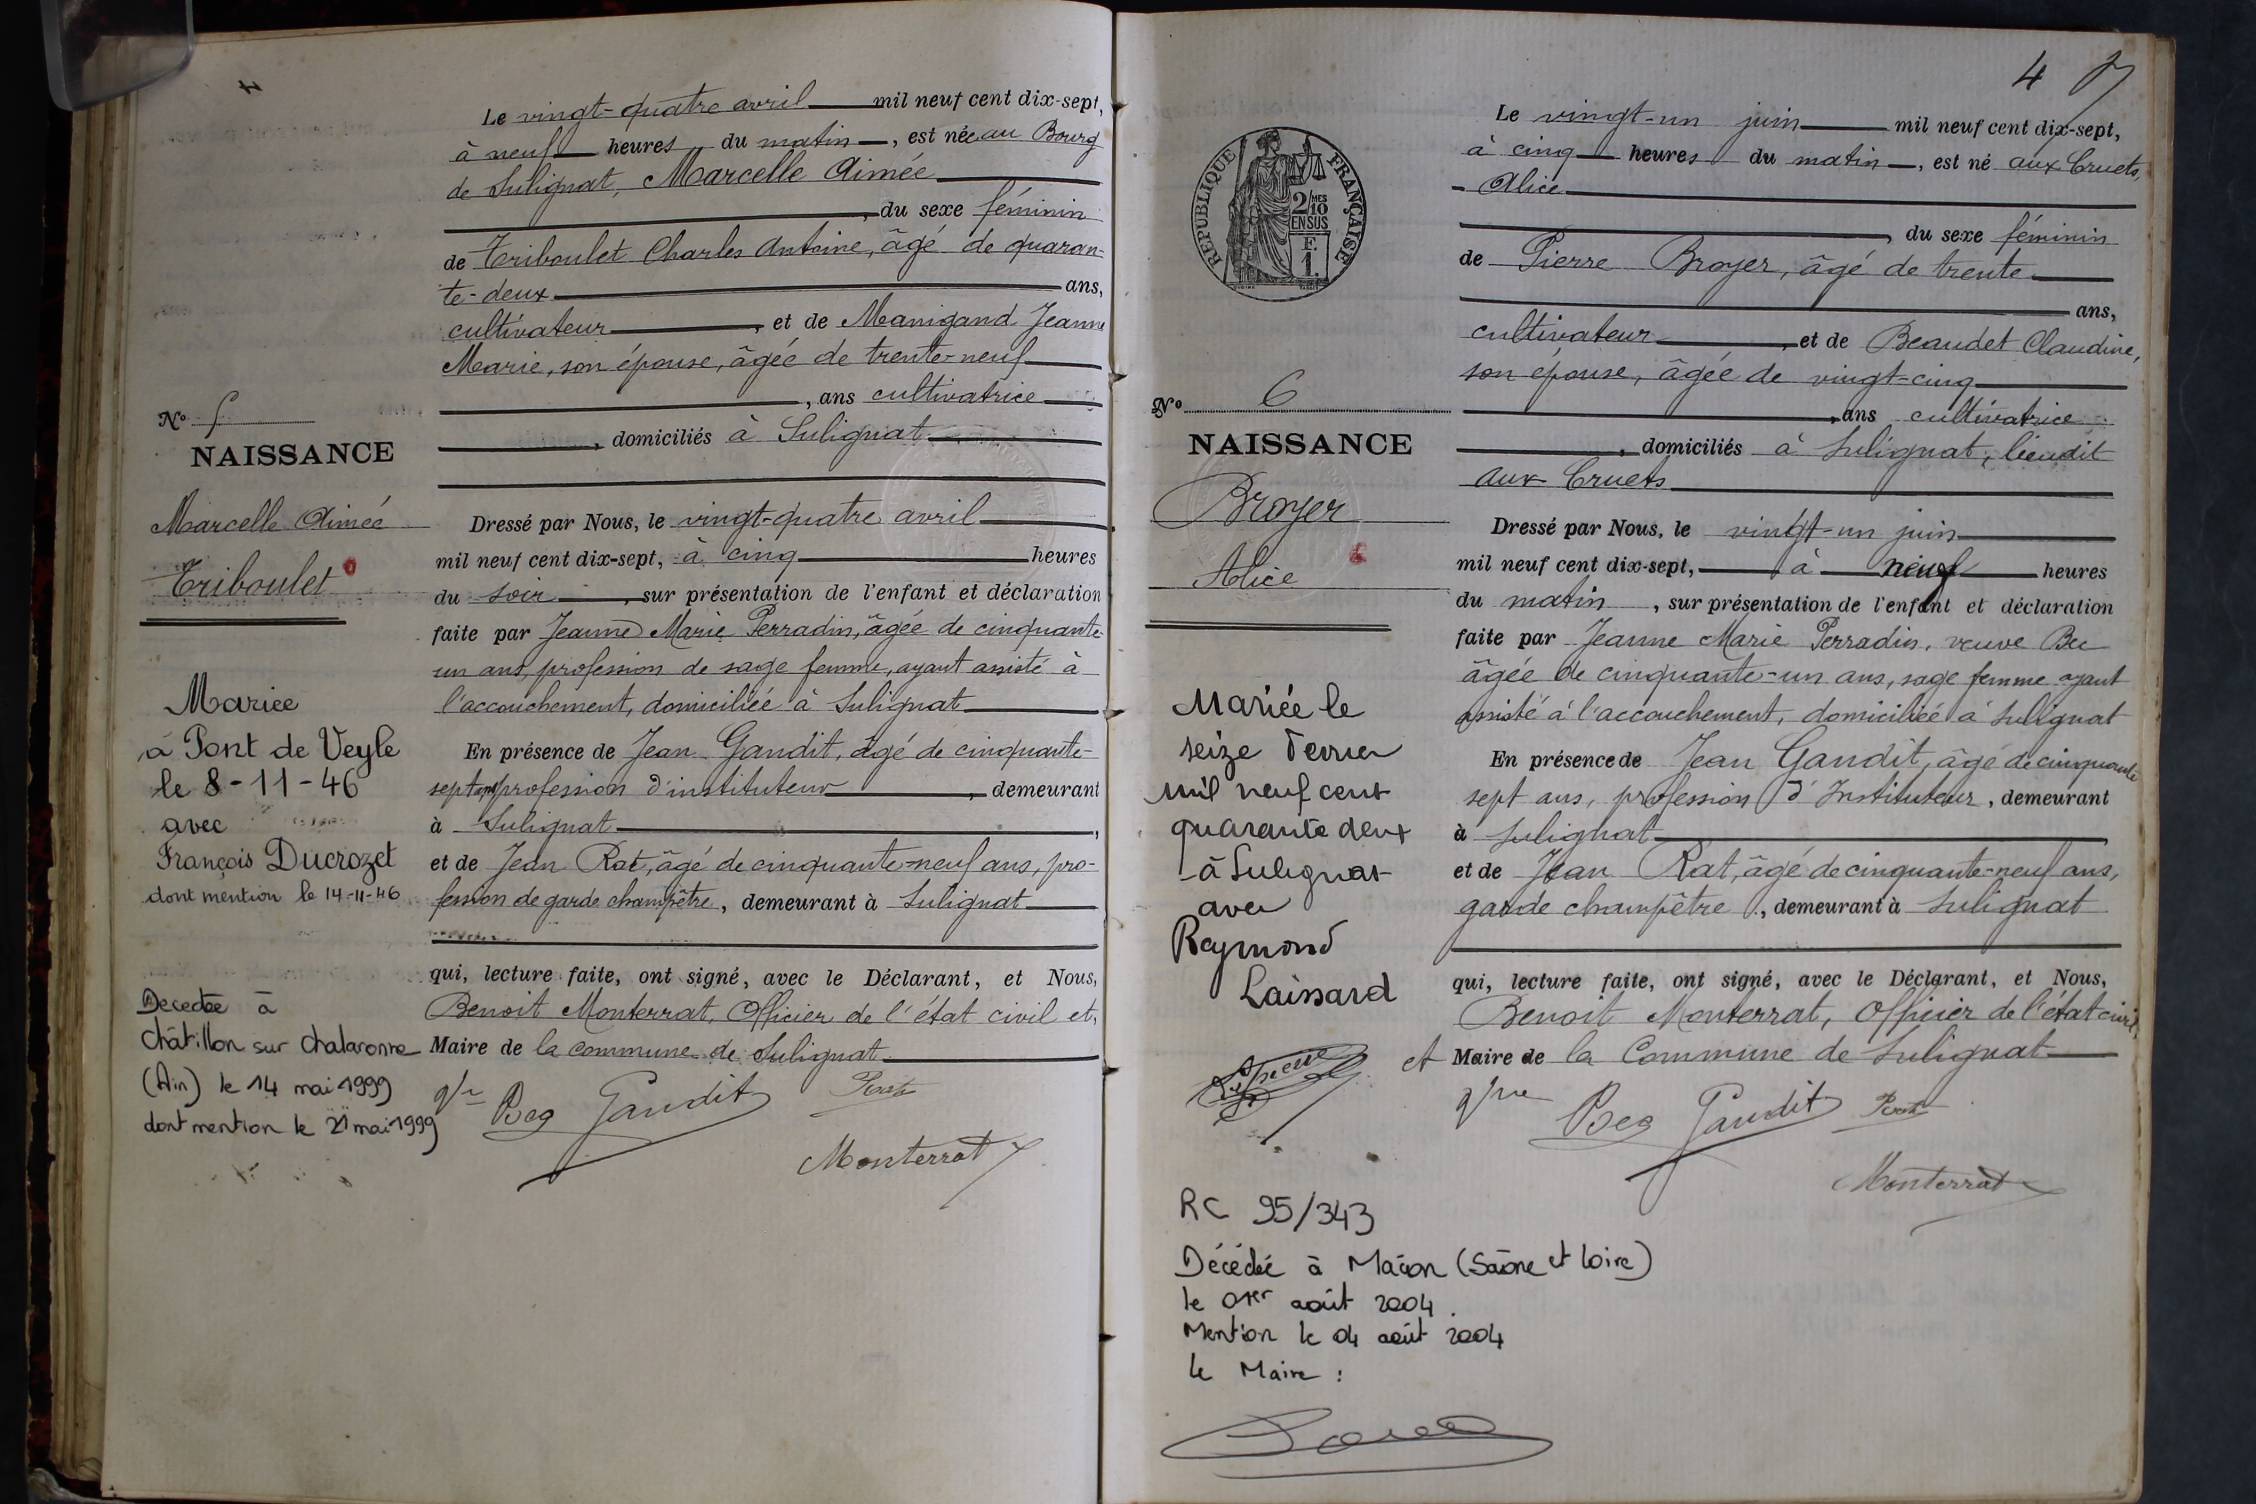 Le vingt-quatre avril mil neuf cent dix-sept,
à neuf heures du matin, est née au Bourg
de Sulignat, Marcelle Aimée
, du sexe féminin
de Triboulet Charles Antoine, âgé de quaran-
te-deux ans,
cultivateur, et de Manigand Jeanne
Marie, son épouse, âgée de trente-neuf
, ans cultivatrice
, domiciliés à Sulignat
Dressé par Nous, le vingt-quatre avril
mil neuf cent dix-sept, à cinq heures
du soir, sur présentation de l'enfant et déclaration
faite par Jeanne Marie Perradin, âgée de cinquante-
un ans, profession de sage femme, ayant assisté à
l'accouchement, domiciliée à Sulignat
En présence de Jean Gaudit, âgé de cinquante-
sept ans, profession d'instituteur, demeurant
à Sulignat,
et de Jean Rat, âgé de cinquante-neuf ans, pro-
fession de garde champêtre, demeurant à Sulignat
qui, lecture faite, ont signé, avec le Déclarant, et Nous,
Benoit Monterrat, Officier de l'état civil et,
Maire de la commune de Sulignat
Gaudit Rat
Monterrat
N° 5
NAISSANCE
Marcelle Aimée
Triboulet
Mariée
à Pont de Veyle
le 8-11-46
avec
François Ducrozet
dont mention le 14-11-46
Décédée à
Châtillon sur Chalaronne
(Ain) le 14 mai 1999
dont mention le 21 mai 1999
4
REPUBLIQUE FRANÇAISE
2/10 MES
EN SUS
F.
1.
N° 6
NAISSANCE
Broyer
Alice
Mariée le
seize Février
mil neuf cent
quarante deux
à Sulignat
avec
Raymond
Laissard
RC 95/343
Décédée à Mâcon (Saône et Loire)
le 01er août 2004.
Mention le 04 août 2004
Le Maire :
Le vingt-un juin mil neuf cent dix-sept,
à cinq heures du matin, est né aux Cruets,
Alice
, du sexe féminin
de Pierre Broyer, âgé de trente
ans,
cultivateur, et de Beaudet Claudine,
son épouse, âgée de vingt-cinq
, ans cultivatrice
, domiciliés à Sulignat, lieudit
aux Cruets
Dressé par Nous, le vingt-un juin
mil neuf cent dix-sept, à neuf heures
du matin, sur présentation de l'enfant et déclaration
faite par Jeanne Marie Perradin, veuve Bec
âgée de cinquante-un ans, sage femme ayant
assisté à l'accouchement, domiciliée à Sulignat
En présence de Jean Gaudit, âgé de cinquante
sept ans, profession d'Instituteur, demeurant
à Sulignat
et de Jean Rat, âgé de cinquante-neuf ans,
garde champêtre, demeurant à Sulignat
qui, lecture faite, ont signé, avec le Déclarant, et Nous,
Benoit Monterrat, Officier de l'état civil,
et Maire de la Commune de Sulignat
Gaudit Rat
Monterrat